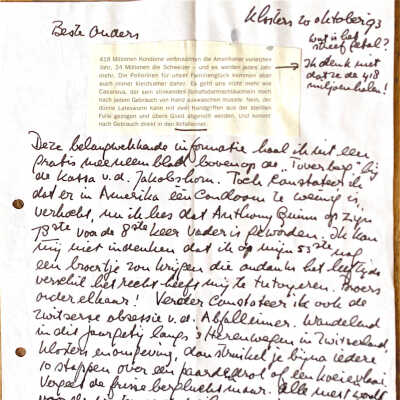 Klosters 20 oktober 93
Beste Ouders
wat is het
scheef getal?
Ik denk niet
dat ze de 418
miljoen halen!
418 Millionen Kondome verbrauchten die Amerikaner vorletztes
Jahr, 24 Millionen die Schweizer – und es werden jedes Jahr
mehr. Die Pariserinnen für unser Familienglück kommen aber
auch immer kleidsamer daher. Es geht uns nicht mehr wie
Casanova, der sein stinkendes Schafsdarmschläuchlein noch
nach jedem Gebrauch von Hand auswaschen musste. Nein, der
dünne Latexwurm kann mit zwei Handgriffen aus der sterilen
Folie gezogen und übers Glied abgerollt werden. Und kommt
nach Gebrauch direkt in den Abfalleimer.
Deze belangwekkende informatie haal ik uit een
gratis meeneemblad bovenop de „Toverberg" bij
de kassa v.d. Jakobshorn. Toch constateer ik
dat er in Amerika één Condoom te weinig is
verkocht, nu ik lees dat Anthony Quinn op zijn
78ste voor de 8ste keer vader is geworden. Ik kan
mij niet indenken dat ik op mijn 53ste nog
een broertje zou krijgen die ondanks het leeftijds
verschil het recht heeft mij te tutoyeren. Broers
onder elkaar! Verder Constateer ik ook de
Zwitserse obsessie v.d. Abfalleimer. Wandelend
in dit jaargetij langs 's Herenwegen in Zwitserland,
Klosters en omgeving, dan struikel je bijna iedere
10 stappen over een paardedrol of een koeienflaai.
Vergeet de frisse berglucht maar. Alle mest wordt